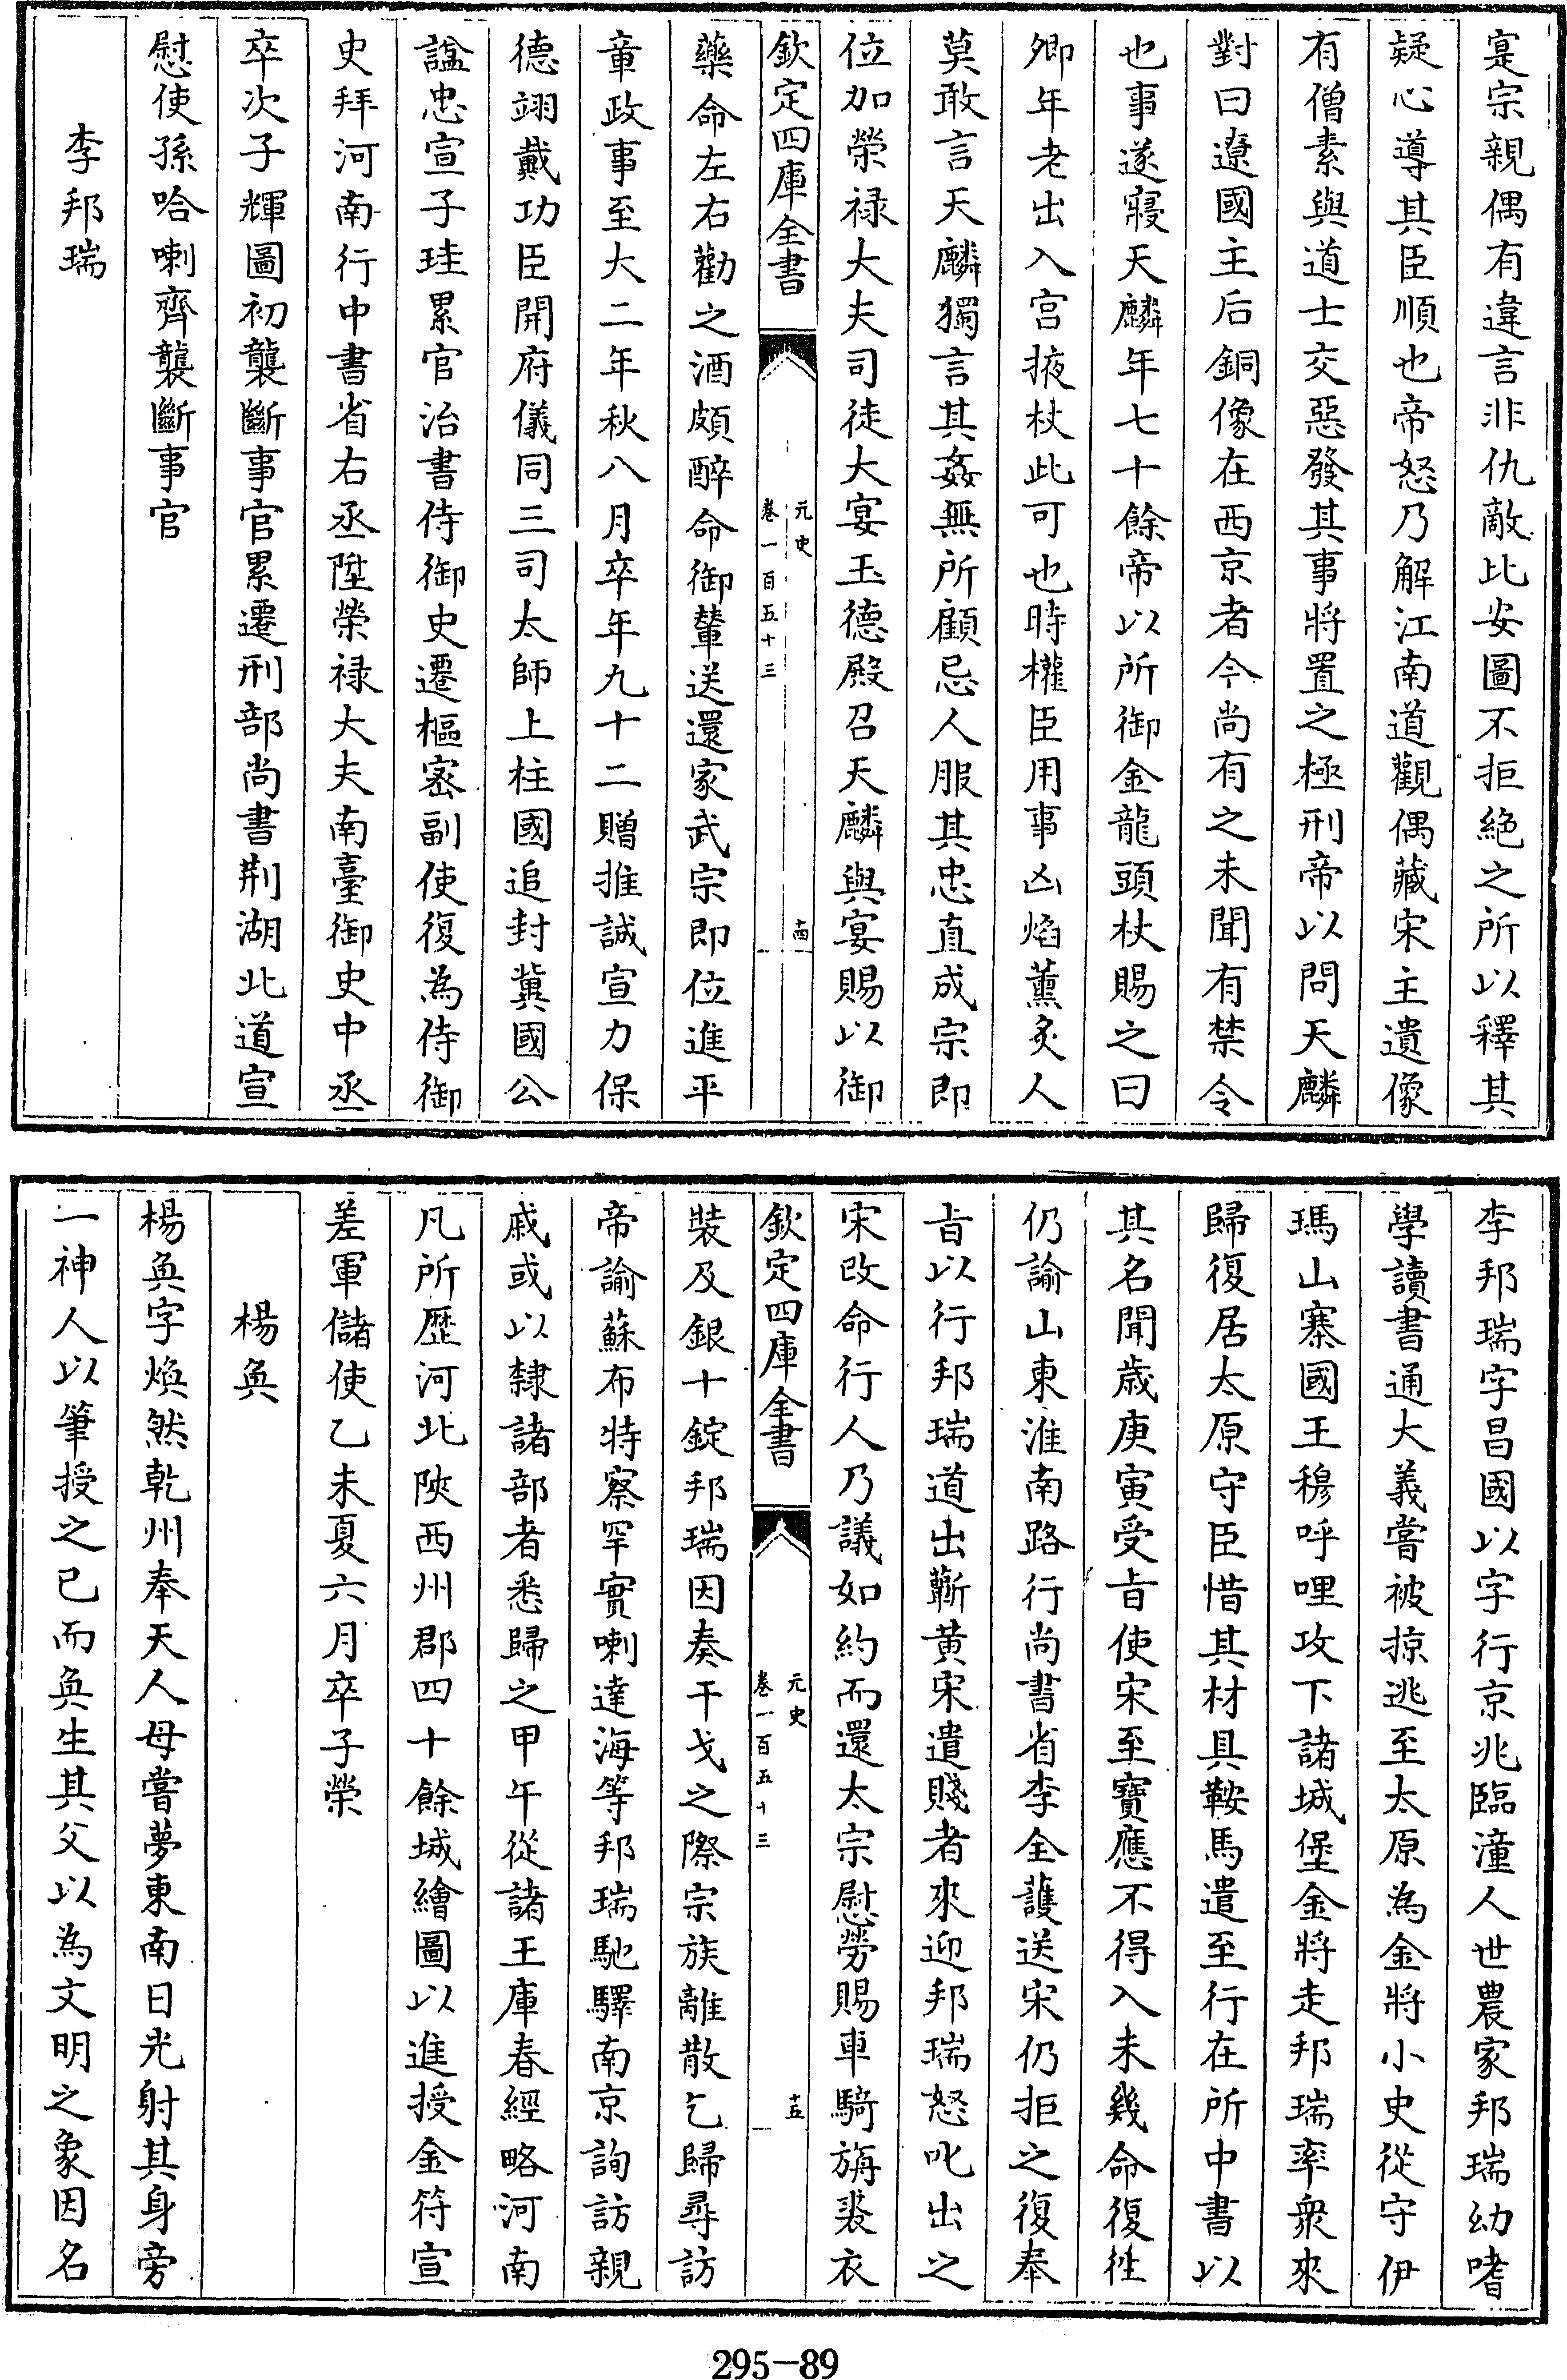 寔宗親偶有違言非仇敵比安圖不拒絶之所以釋其
疑心導其臣順也帝怒乃解江南道觀偶藏宋主遺像
有僧素與道士交惡發其事將置之極刑帝以問天麟
對曰遼國主后銅像在西京者今尚有之未聞有禁令
也事遂寢天麟年七十餘帝以所御金龍頭杖賜之曰
卿年老出入宫掖杖此可也時權臣用事凶焰薰炙人
莫敢言天麟獨言其姦無所顧忌人服其忠直成宗即
位加榮禄大夫司徒大宴玉德殿召天麟與宴賜以御
欽定四庫全書
元史
卷一百五十三
十四
藥命左右勸之酒頗醉命御輦送還家武宗即位進平
章政事至大二年秋八月卒年九十二贈推誠宣力保
德翊戴功臣開府儀同三司太師上柱國追封冀國公
諡忠宣子珪累官治書侍御史遷樞宻副使復為侍御
史拜河南行中書省右丞陞榮禄大夫南臺御史中丞
卒次子輝圖初襲斷事官累遷刑部尚書荆湖北道宣
慰使孫哈喇齊襲斷事官
李邦瑞
李邦瑞字昌國以字行京兆臨潼人世農家邦瑞幼嗜
學讀書通大義嘗被掠逃至太原為金將小史從守伊
瑪山寨國王穆呼哩攻下諸城堡金將走邦瑞率衆來
歸復居太原守臣惜其材具鞍馬遣至行在所中書以
其名聞歲庚寅受㫖使宋至寶應不得入未幾命復徃
仍諭山東淮南路行尚書省李全護送宋仍拒之復奉
㫖以行邦瑞道出蘄黄宋遣賤者來迎邦瑞怒叱出之
宋改命行人乃議如約而還太宗慰勞賜車騎旃裘衣
欽定四庫全書
元史
卷一百五十三
十五
裝及銀十錠邦瑞因奏干戈之際宗族離散乞歸尋訪
帝諭蘇布特察罕實喇達海等邦瑞馳驛南京詢訪親
戚或以隸諸部者悉歸之甲午從諸王庫春經略河南
凡所歴河北陜西州郡四十餘城繪圖以進授金符宣
差軍儲使乙未夏六月卒子榮
楊奐
楊奐字煥然乾州奉天人母嘗夢東南日光射其身旁
一神人以筆授之已而奐生其父以為文明之象因名
295-89